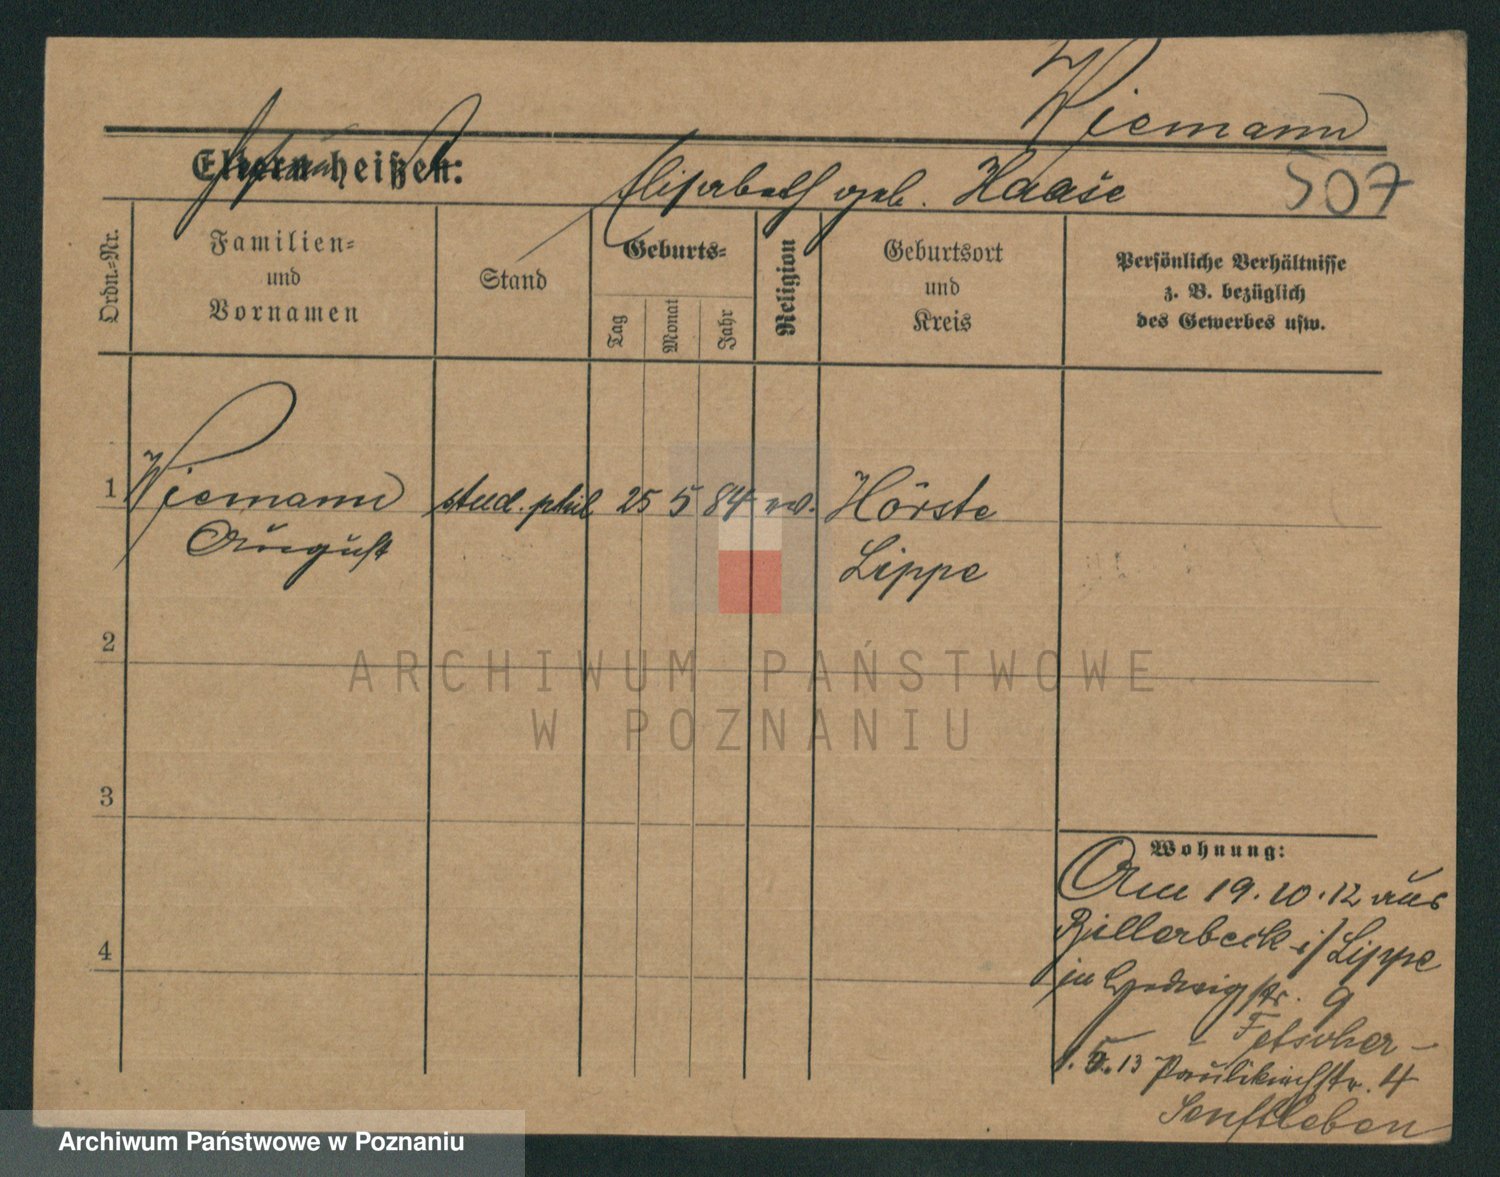 Wiemann
Eltern heißen:
Elisabeth geb. Haase
507
Ordn.-Nr.
Familien-
und
Vornamen
Stand
Geburts-
Tag
Monat
Jahr
Religion
Geburtsort
und
Kreis
Persönliche Verhältnisse
z. B. bezüglich
des Gewerbes usw.
1 Wiemann stud. phil 25 5 84 ev. Hörste
August Lippe
2
3
4
Wohnung:
Am 19.10.12 aus
Billerbeck i/Lippe
in Hedwigstr. 9
Fetscher -
1.5.13 Paulikirchstr. 4
Senftleben
ARCHIWUM PAŃSTWOWE
W POZNANIU
Archiwum Państwowe w Poznaniu